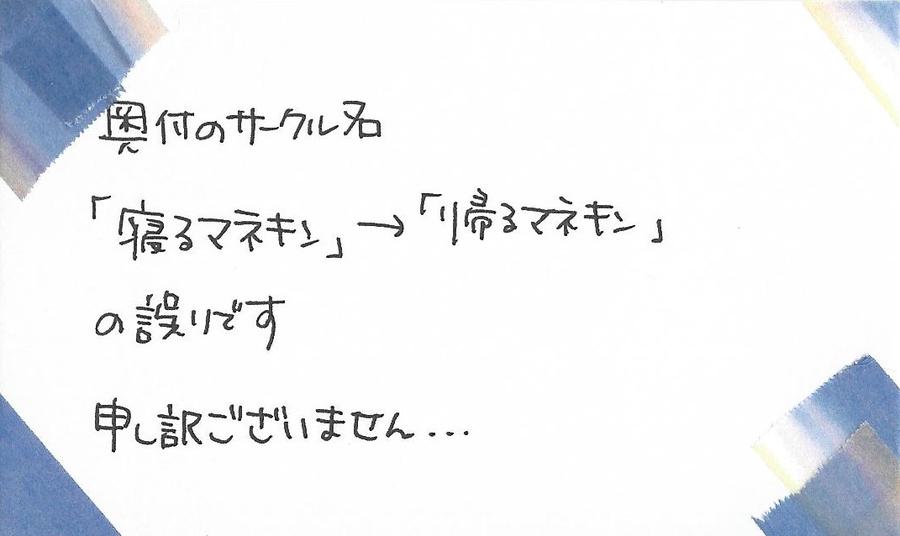 奥付のサークル名
「寝るマネキン」→「帰るマネキン」
の誤りです
申し訳ございません...